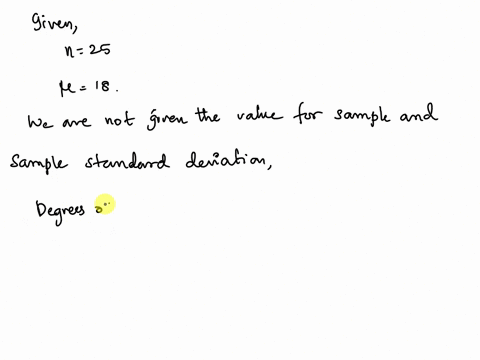 Given,
n = 25
μ = 18.
We are not given the value for sample and
Sample standard deviation,
Degrees o